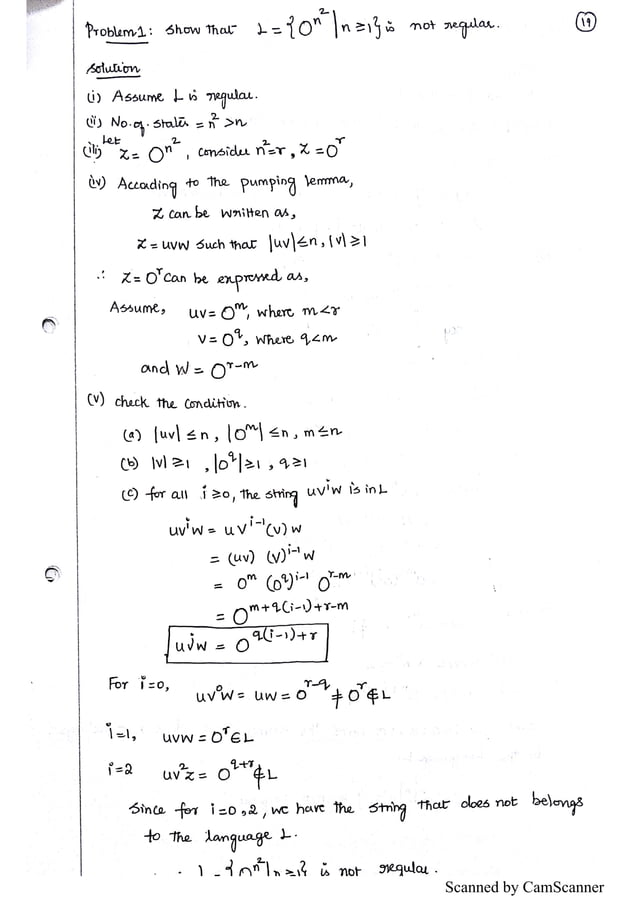 Problem1: Show that L = {0^n^2 | n ≥ 1} is not regular. 19
Solution
(i) Assume L is regular.
(ii) No. of. states = n^2 > n
(iii) Let z = 0^n^2, consider n^2 = r, z = 0^r
(iv) Accading to the pumping lemma,
z can be written as,
z = uvw such that |uv| ≤ n, |v| ≥ 1
∴ z = 0^r can be expressed as,
Assume, uv = 0^m, where m < r
v = 0^q, where q < m
and w = 0^r-m
(v) check the condition.
(a) |uv| ≤ n, |0^m| ≤ n, m ≤ n
(b) |v| ≥ 1, |0^q| ≥ 1, q ≥ 1
(c) for all i ≥ 0, the string uv^iw is in L
uv^iw = uv^i-1(v)w
= (uv) (v)^i-1 w
= 0^m (0^q)^i-1 0^r-m
= 0^m+q(i-1)+r-m
uv^iw = 0^q(i-1)+r
For i=0, uv^0w = uw = 0^r-q ≠ 0^r ∉ L
i=1, uvw = 0^r ∈ L
i=2 uv^2z = 0^q+r ∉ L
Since for i=0,2, we have the string that does not belongs
to the language L.
∴ L = {0^n^2 | n ≥ 1} is not regular.
Scanned by CamScanner